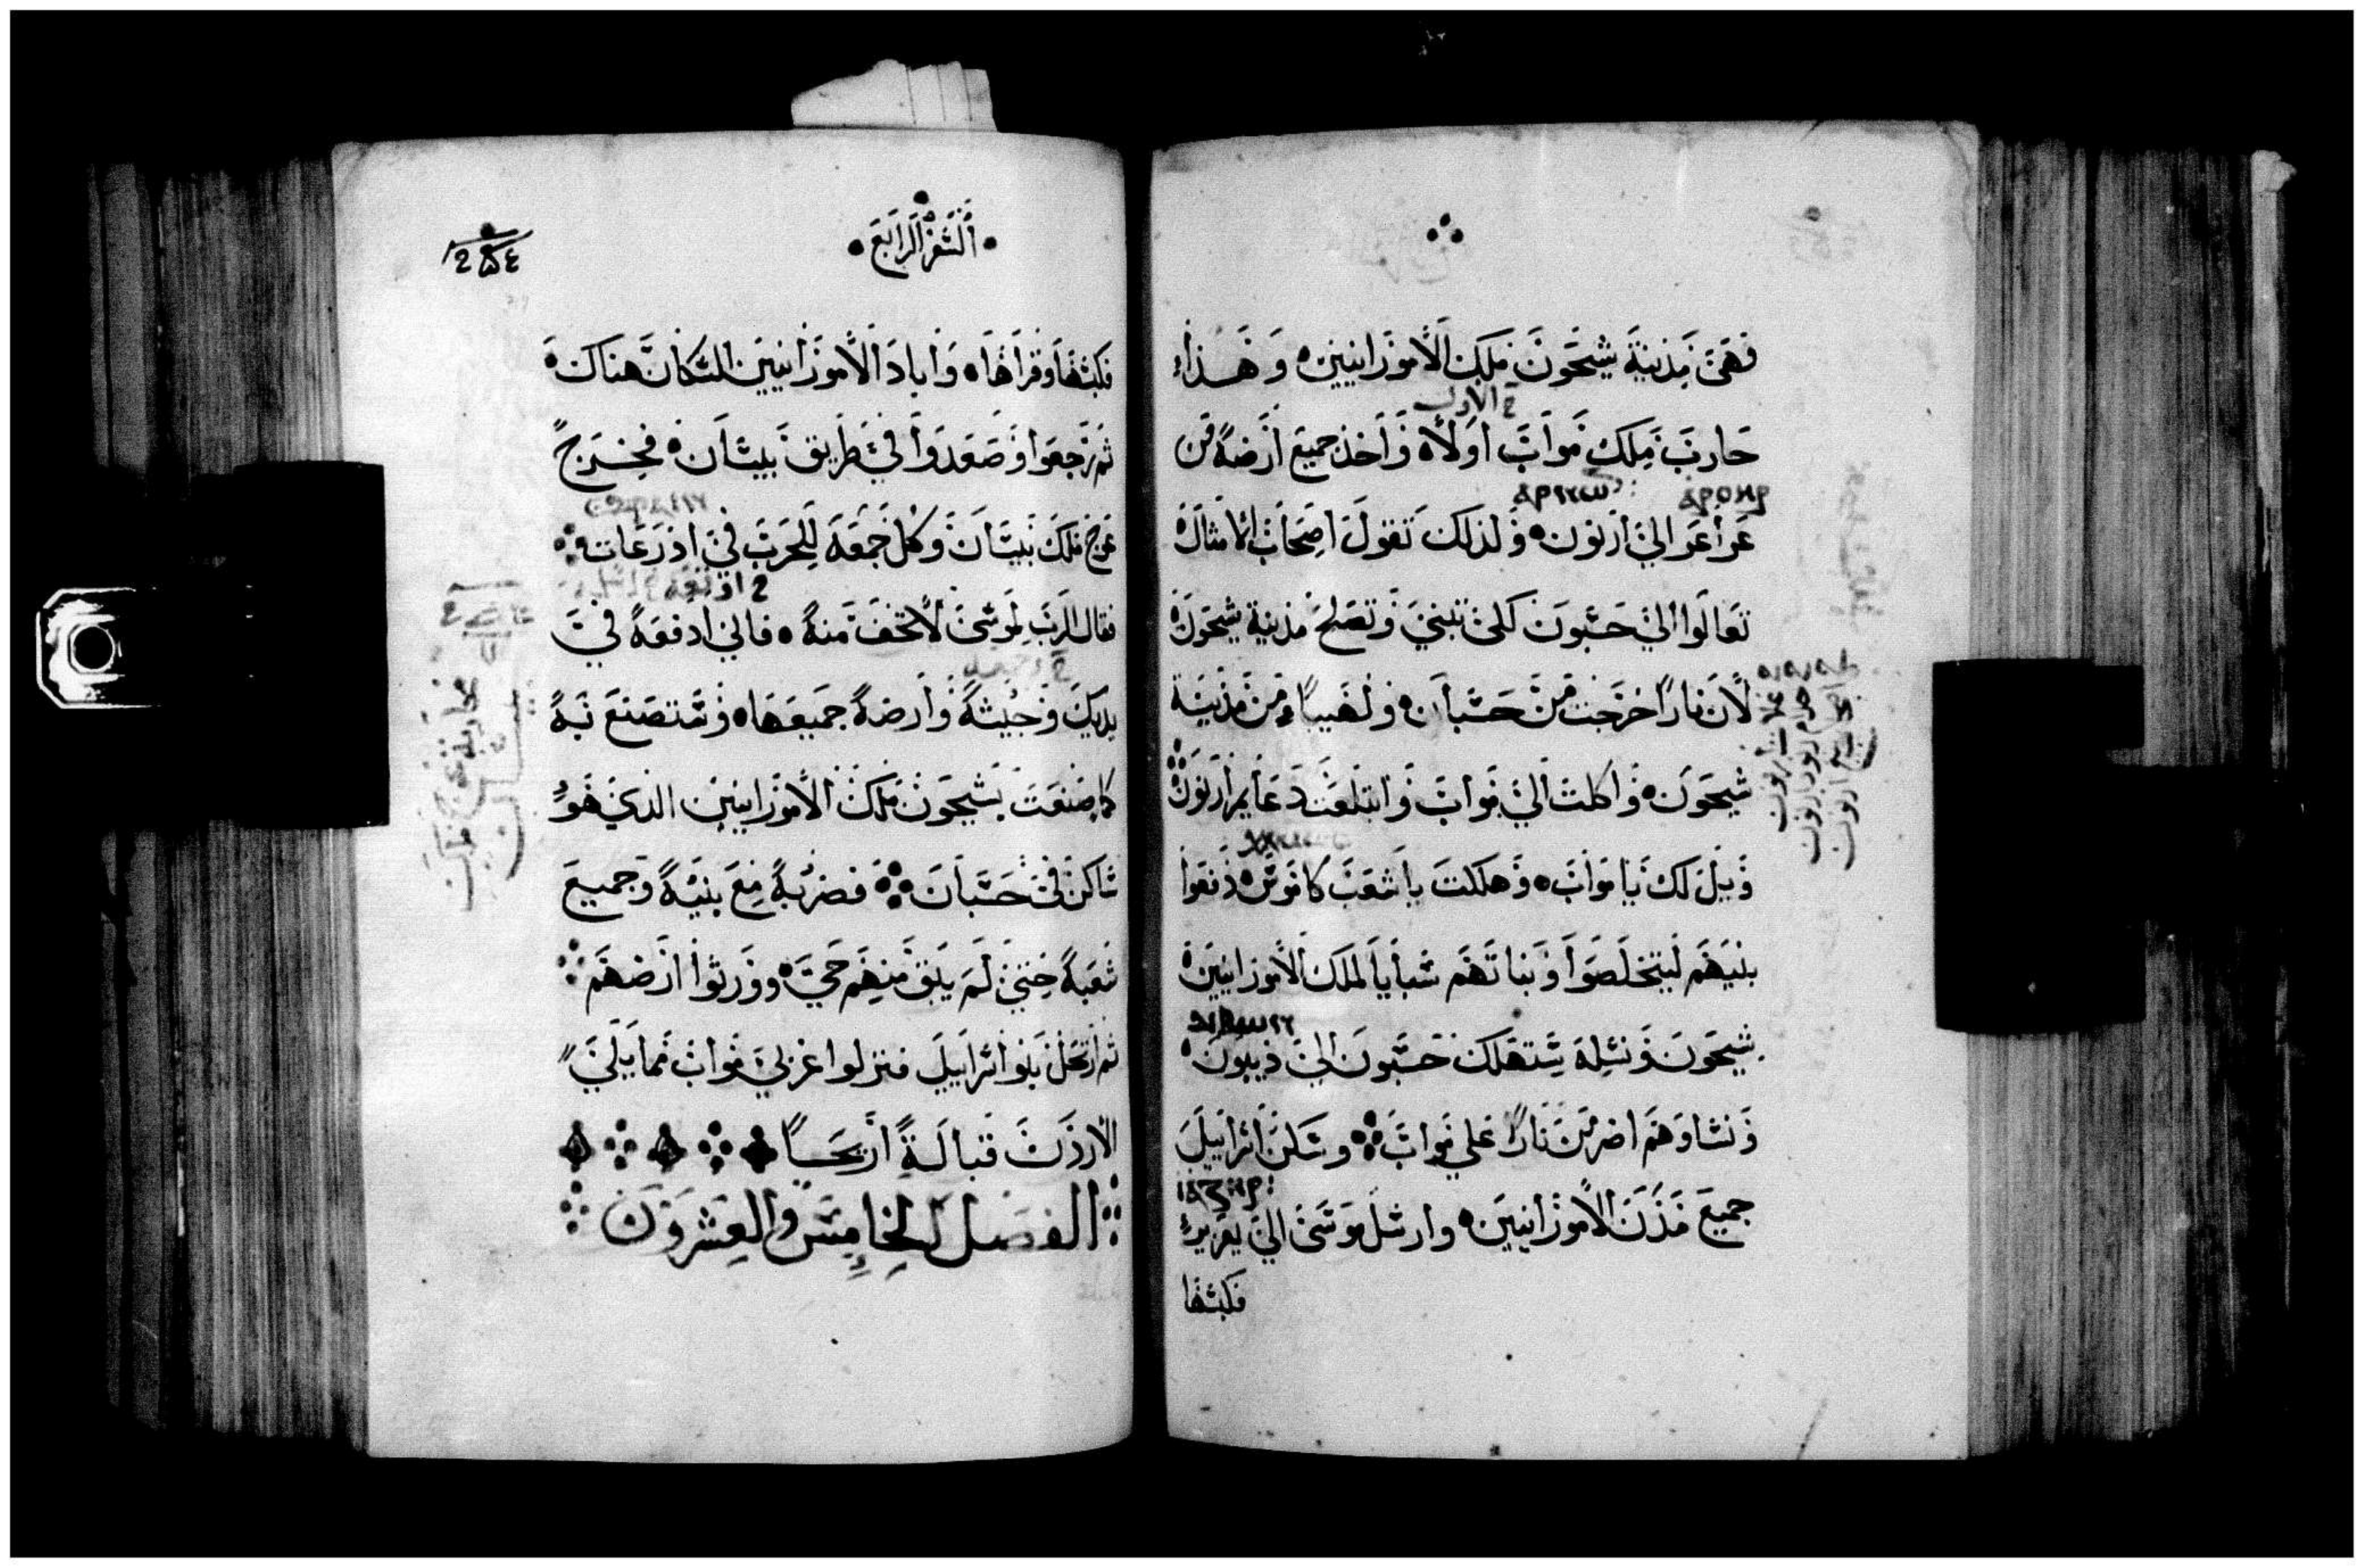 فهى مدينة سيحون ملك الامورانيين وهذا
ح الاول
حارب ملك مواب اولا واخذ جميع ارضه من
عراعر الى ارنون ولذلك تقول اصحاب الامثال
تعالوا الى حسبون كلى تبنى وتصلح مدينة سيحون
لان نارا خرجت من حسبان ولهيبا من مدينة
سيحون واكلت الى مواب وابتلعت دعايم ارنون
ويل لك يا مواب وهلكت يا شعب كاموس دفعوا
بنيهم ليتخلصوا وبناتهم سبايا لملك الامورانيين
سيحون ونسله ستهلك حسبون الى ذيبون
ونساوهم اضرمن نارا على مواب وسكن اسراييل
جميع مدن الامورانيين وارسل موسى الى يعزير
فكبسها
السفر الرابع
فكبسها وقراها واباد الامورانيين السكان هناك
ثم رجعوا وصعدوا في طريق بيسان فخرج
عوج ملك بيسان وكل جمعه للحرب في اذرعات
فقال الرب لموسى لا تخف منه فانى ادفعه في
يديك وجيشه وارضه جميعها وستصنع به
كما صنعت بسيحون ملك الامورانيين الذي هو
ساكن في حسبان فضربه مع بنيه وجميع
شعبه حتى لم يبق منهم حى وورثوا ارضهم
ثم ارتحل بنوا اسراييل فنزلوا غربى مواب مما يلى
الاردن قبالة اريحا
الفصل الخامس والعشرون